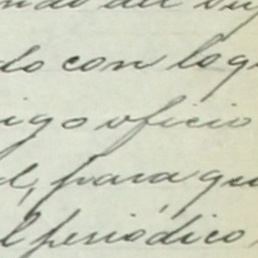 do con lo q
igo oficio
l, para que
l periódico,